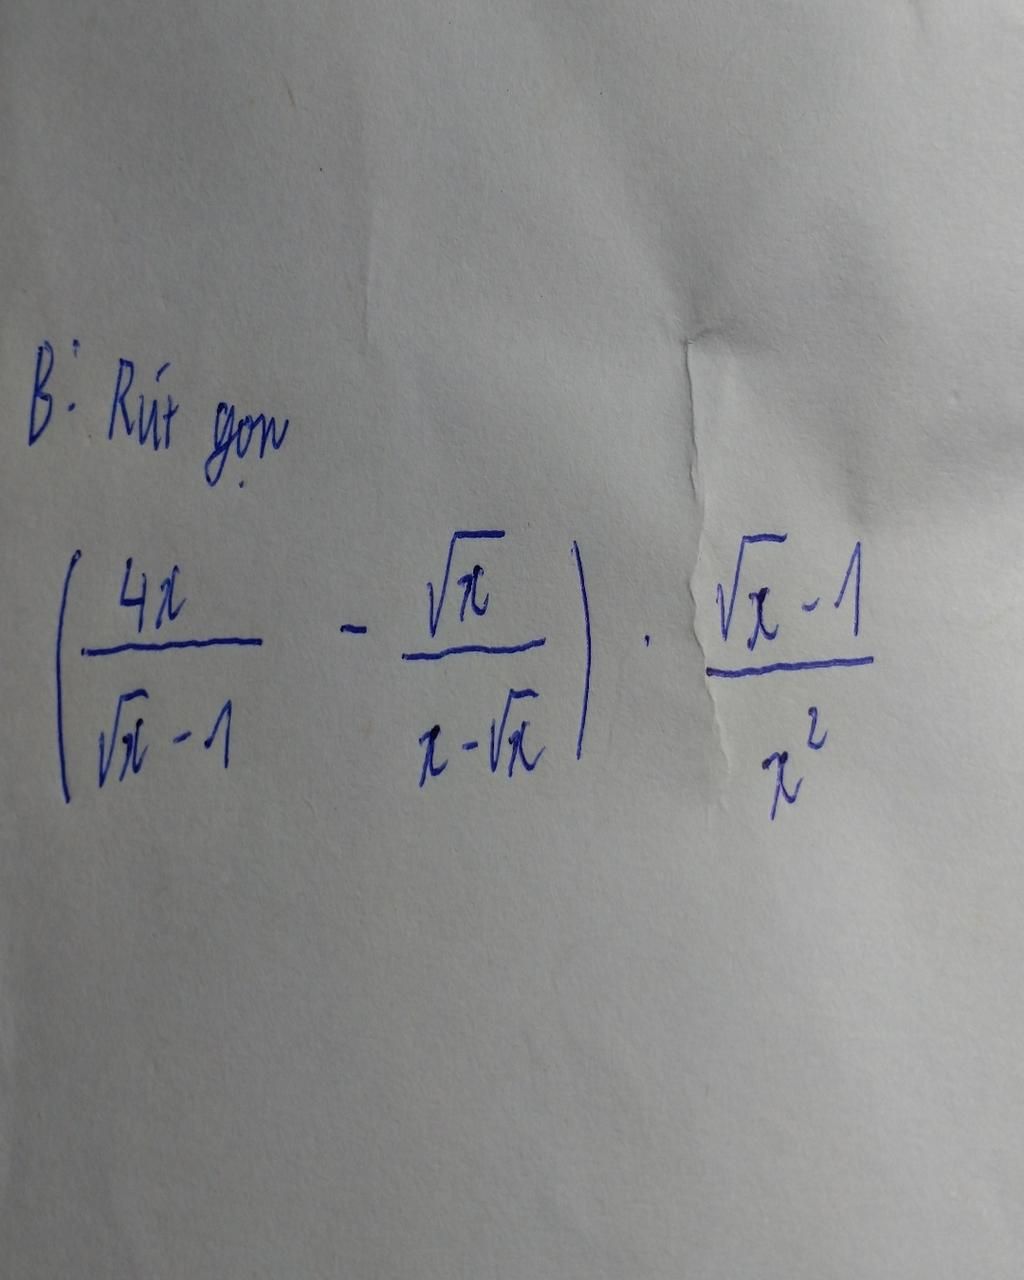 B: Rút gọn
(4x/(√x - 1) - √x/(x - √x)) . (√x - 1)/x²